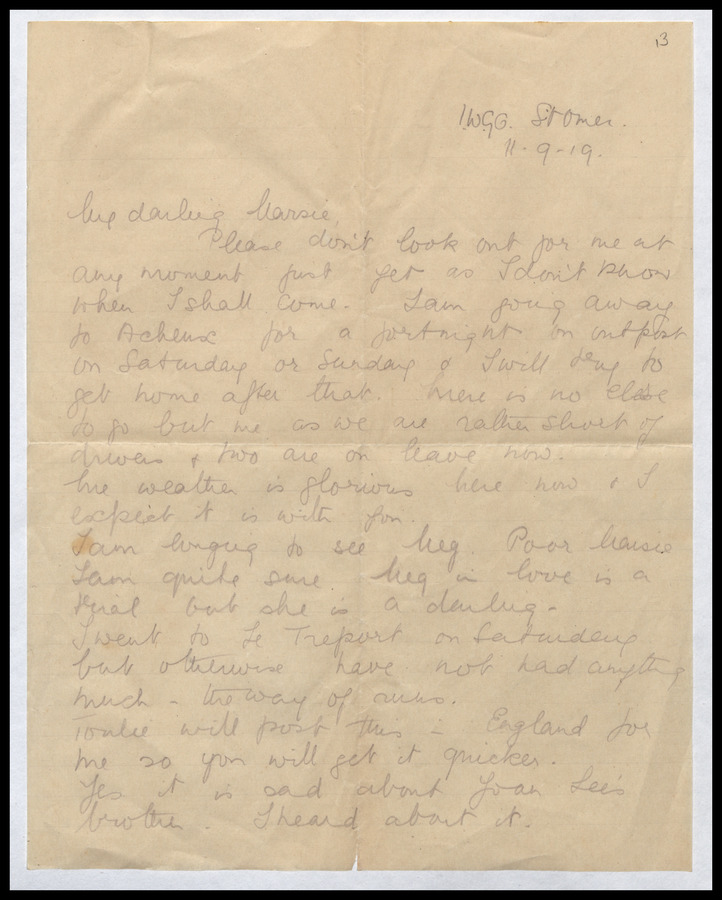 13
I.W.G.C. St Omer.
11-9-19.
My darling Marsie,
Please don't look out for me at
any moment just yet as I don't know
when I shall come. I am going away
to Acheux for a fortnight on outpost
on Saturday or Sunday & I will try to
get home after that. There is no else
to go but me as we are rather short of
drivers & two are on leave now.
The weather is glorious here now & I
expect it is with you.
I am longing to see Meg. Poor Marsie
I am quite sure Meg in love is a
trial but she is a darling -
I went to Le Treport on Saturday
but otherwise have not had anything
much - the way of runs.
will post this in England for
me so you will get it quicker.
Yes it is sad about Joan Lee's
brother. I heard about it.